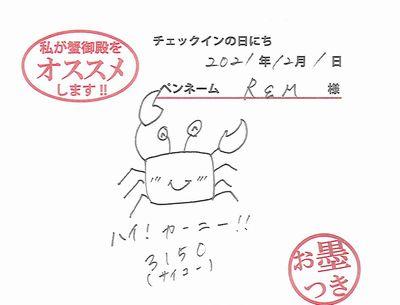 私が蟹御殿を
オススメ
します!!
チェックインの日にち
2021年12月1日
ペンネーム REM 様
ハイ!カーニー!!
3150
(サイコー)
お墨
つき